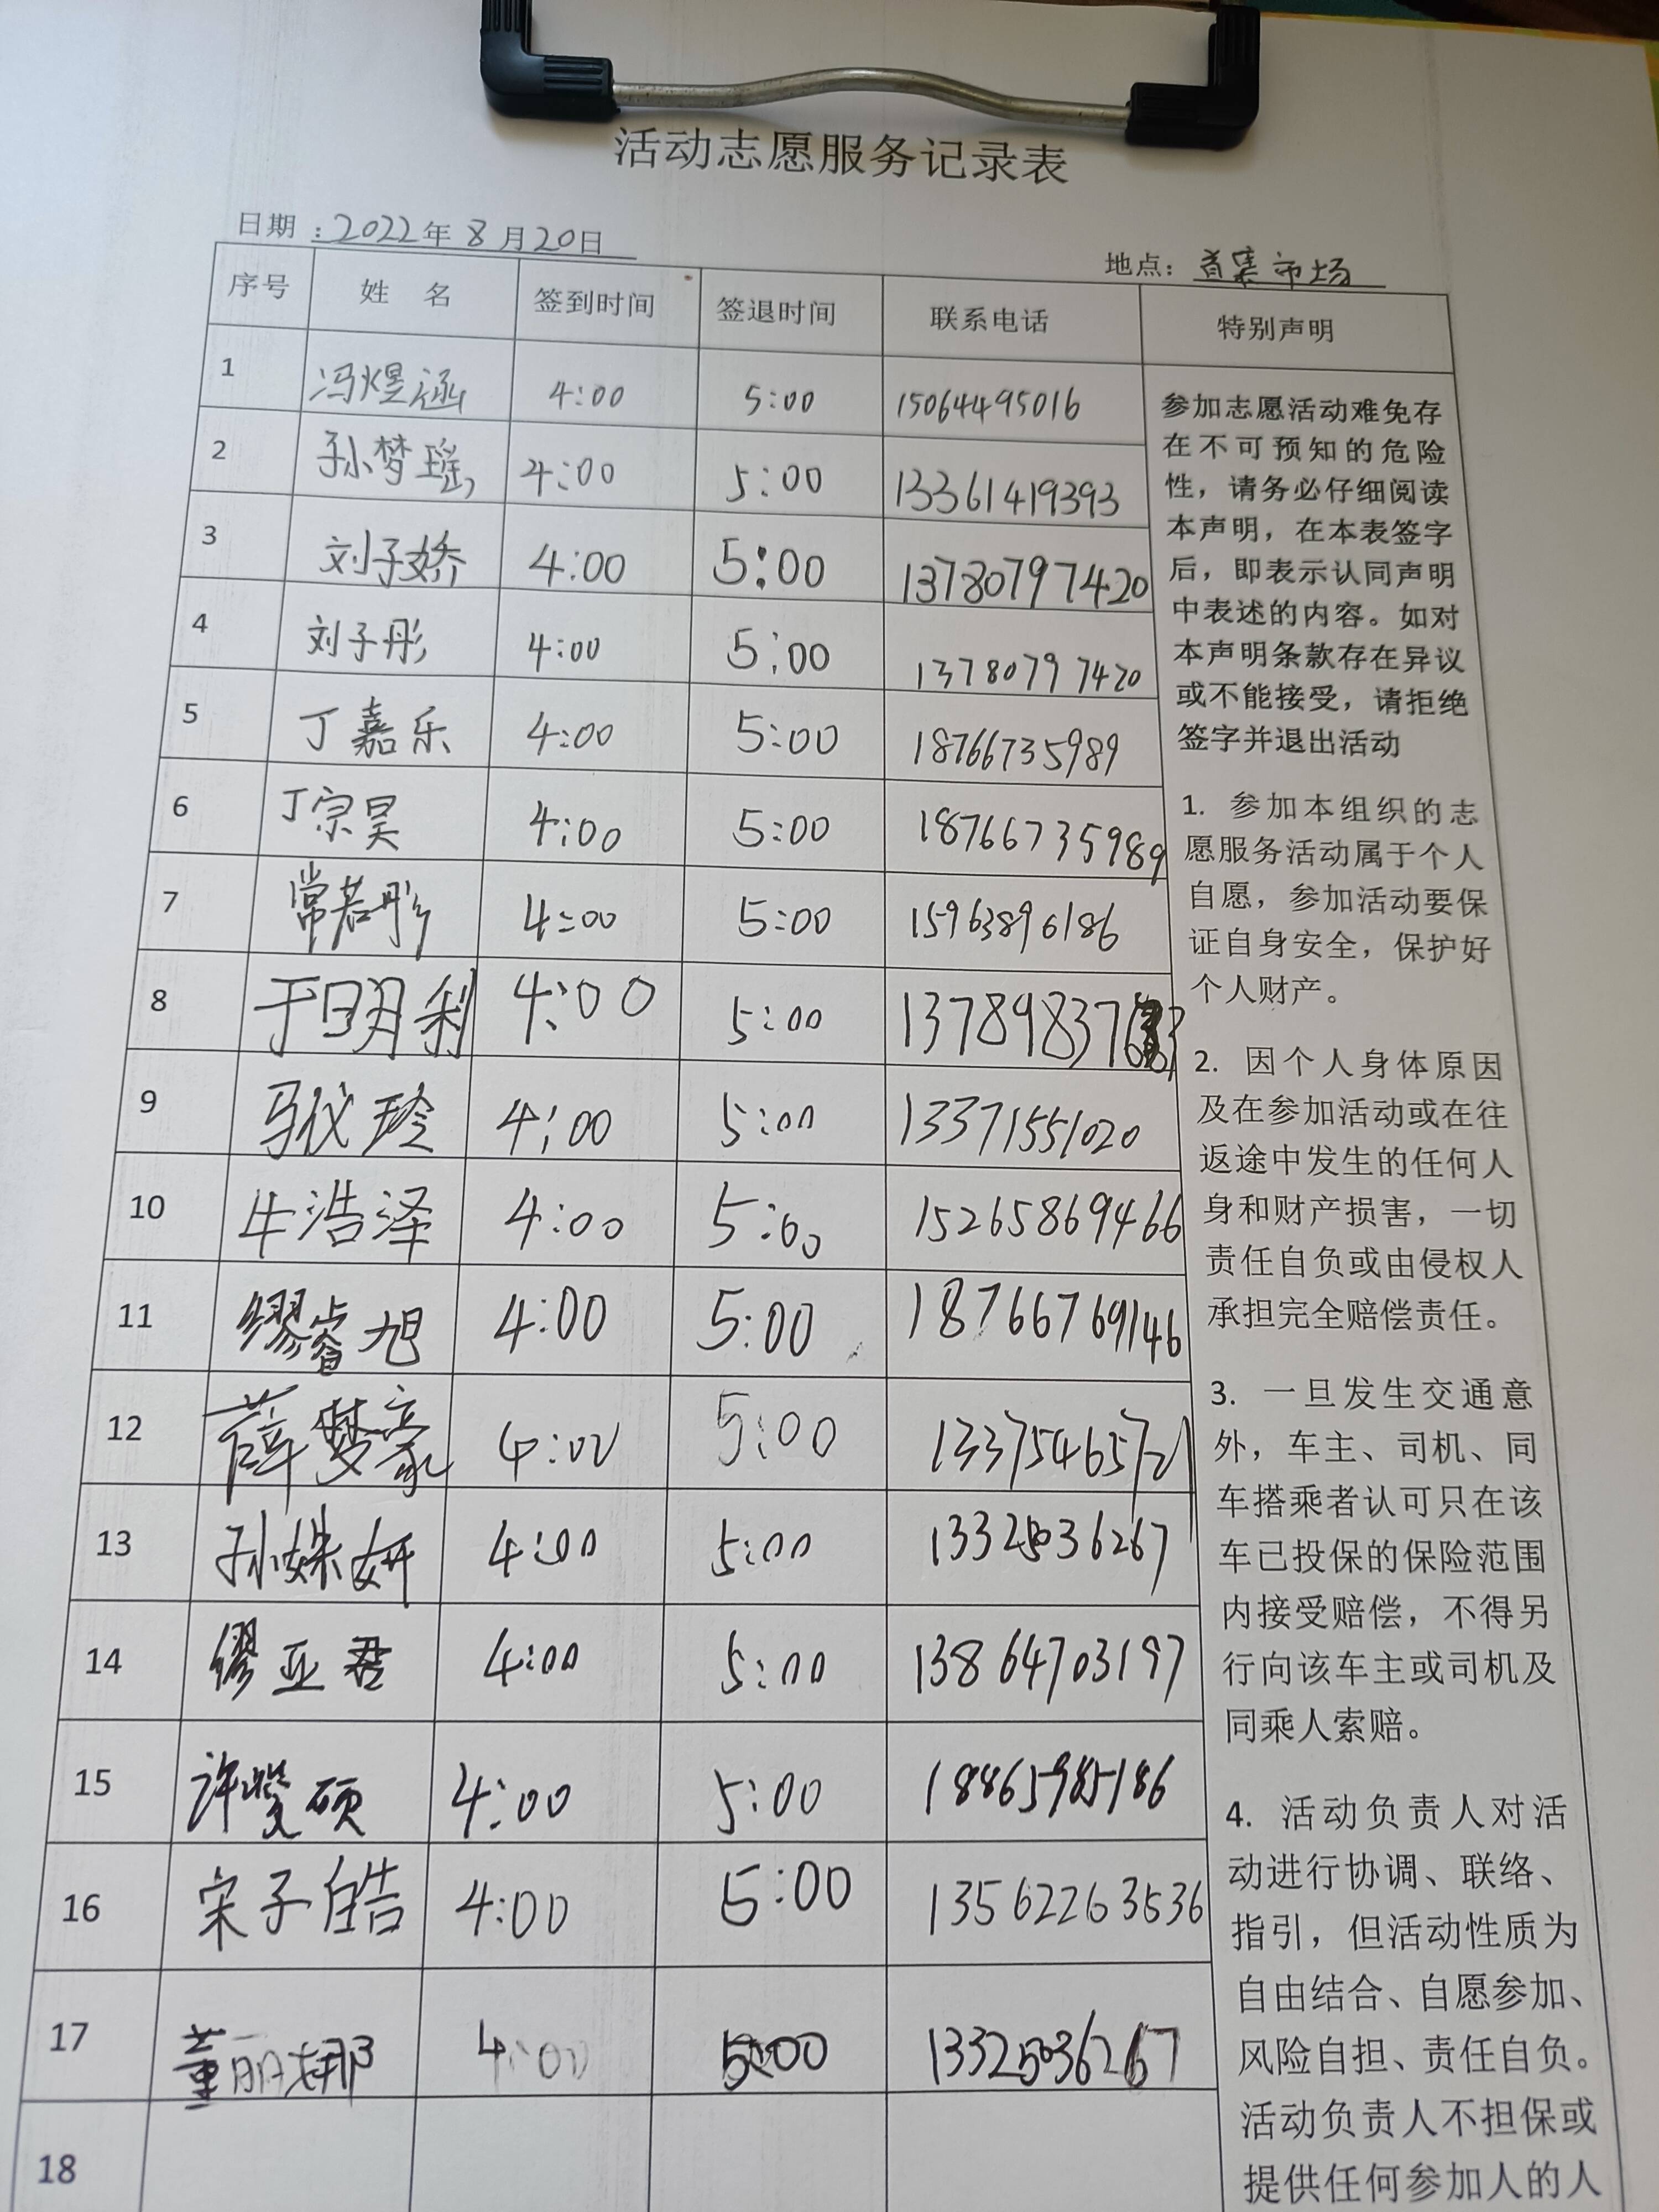 活动志愿服务记录表
日期：2022年8月20日
地点：首集市场
序号 姓 名 签到时间 签退时间 联系电话 特别声明
1 冯煜涵 4:00 5:00 15064495016
2 孙梦瑶 4:00 5:00 13361419393
3 刘子娇 4:00 5:00 13780797420
4 刘子彤 4:00 5:00 13780797420
5 丁嘉乐 4:00 5:00 18766735989
6 丁宗昊 4:00 5:00 18766735989
7 常若彤 4:00 5:00 15963896186
8 于明利 4:00 5:00
9 马仪玲 4:00 5:00 13371551020
10 牛浩泽 4:00 5:00 15265869466
11 缪睿旭 4:00 5:00 18766769146
12 薛梦豪 4:00 5:00 13375465721
13 孙姝妍 4:00 5:00 13325036267
14 缪亚君 4:00 5:00 13864703197
15 许莹硕 4:00 5:00 18865985186
16 宋子皓 4:00 5:00 13562263536
17 董丽娜 4:00 5:00 13325036267
18
参加志愿活动难免存
在不可预知的危险
性，请务必仔细阅读
本声明，在本表签字
后，即表示认同声明
中表述的内容。如对
本声明条款存在异议
或不能接受，请拒绝
签字并退出活动
1. 参加本组织的志
愿服务活动属于个人
自愿，参加活动要保
证自身安全，保护好
个人财产。
2. 因个人身体原因
及在参加活动或在往
返途中发生的任何人
身和财产损害，一切
责任自负或由侵权人
承担完全赔偿责任。
3. 一旦发生交通意
外，车主、司机、同
车搭乘者认可只在该
车已投保的保险范围
内接受赔偿，不得另
行向该车主或司机及
同乘人索赔。
4. 活动负责人对活
动进行协调、联络、
指引，但活动性质为
自由结合、自愿参加、
风险自担、责任自负。
活动负责人不担保或
提供任何参加人的人